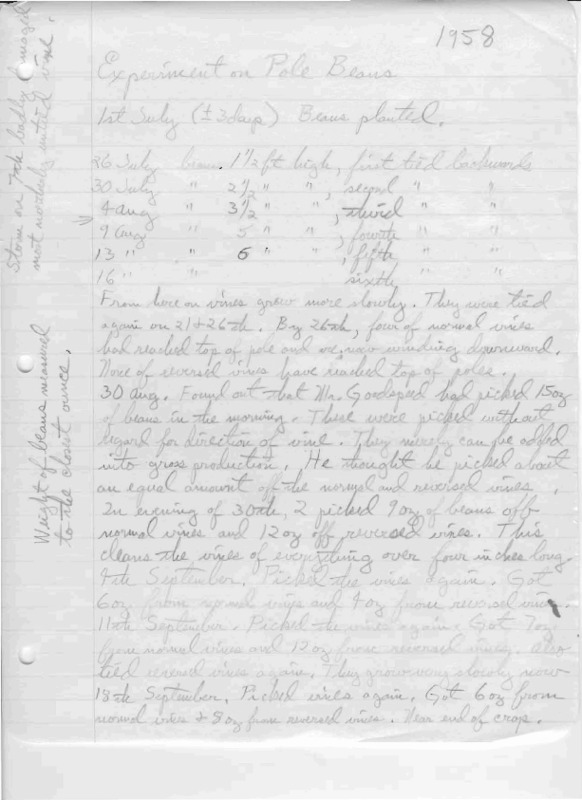 1958
Experiment on Pole Beans
1st July (±3days) Beans planted.
26 July beans 1 1/2 ft high, first tied backwards
30 July " 2 1/2 " ", second " "
4 Aug " 3 1/2 " ", third " "
9 Aug " 5 " ", fourth " "
13 " " 6 " ", fifth " "
16 " " sixth " "
From here on vines grew more slowly. They were tied
again on 21+26th. By 26th, four of normal vines
had reached top of pole and were winding downward.
None of reversed vines have reached top of poles.
30 Aug. Found out that Mr. Goodspeed had picked 15oz
of beans in the morning. These were picked without
regard for direction of vine. They merely can be added
into gross production. He thought he picked about
an equal amount off the normal and reversed vines.
In evening of 30th, I picked 9 oz of beans off
normal vines and 12 oz off reversed vines. This
cleans the vines of everything over four inches long.
4th September. Picked the vines again. Got
6oz from normal vines and 4oz from reversed vines.
11th September. Picked the vines again. Got 7oz
from normal vines and 12 oz from reversed vines. Also
tied reversed vines again. They growing slowly now
18th September. Picked vines again. Got 6oz from
normal vines + 8oz from reversed vines. Near end of crop.
Storm on 7th badly damaged
most untied vine.
Weight of beans measured
to the closest ounce.